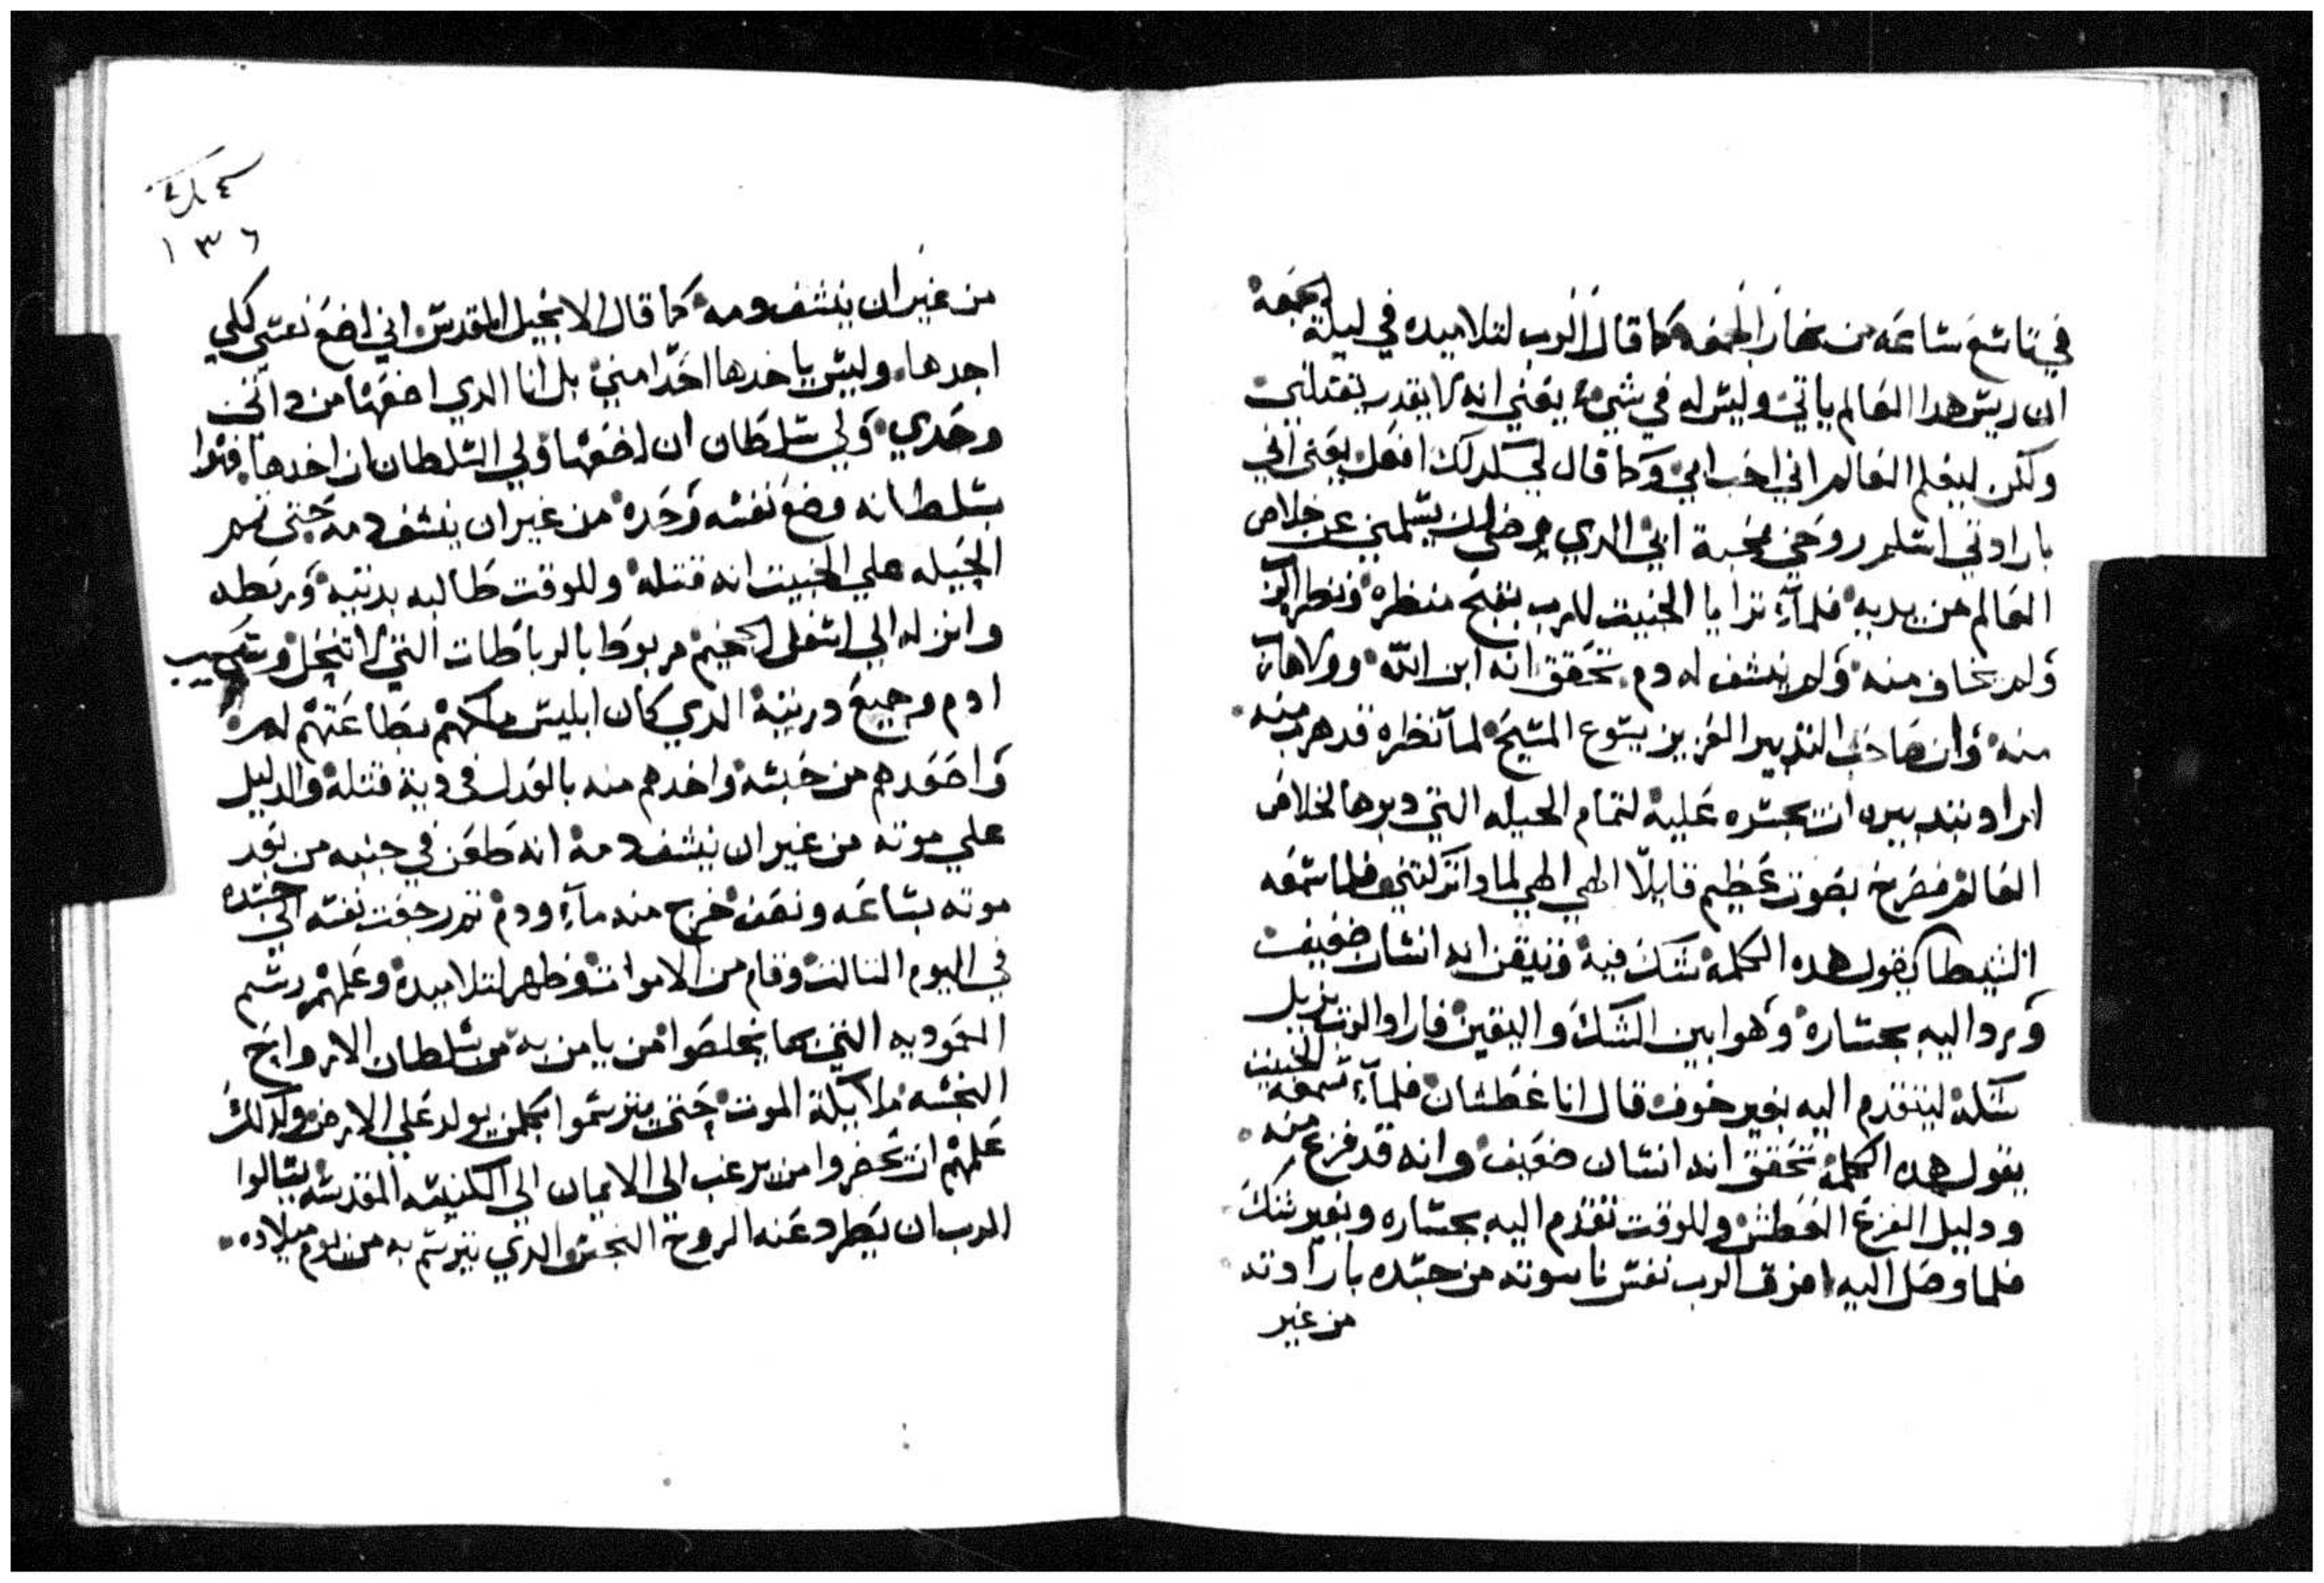 في تاسع ساعه من نهار الجمعه كما قال الرب لتلاميده في ليلة الجمعه
ان ريس هدا العالم ياتي وليس له في شيء يعني انه لا يقدر يقتلني
ولكن ليعلم العالم اني احب ابي وكما قال لي كدلك افعل يعني اني
بارادتي اسلم روحي محبة ابي الدي يسلمني عن خلاص
العالم من يديه فلمآ ترايا الخبيت للرب بقبح منظره ونظر الرب
ولم يخاف منه ولم ينشف له دم تحقق انه ابن الله وولا هارب
منه وان صاحب التدبير العزيز يسوع المسيح لما نظره قد هرب منه
اراد بتدبيره ان يجسره عليه لتمام الحيله التي دبرها لخلاص
العالم فصرخ بصوت عظيم قايلا الهي الهي لمادا تركتني فلما سمعه
الشيطان يقول هده الكلمه شك فيه وتيقن انه انسان ضعيف
ويرد اليه بجساره وهوا بين الشك واليقين فاراد الرب يزيل
شكه ليتقدم اليه بغير خوف قال انا عطشان فلمآ سمعه الخبيت
يقول هده الكلمه تحقق انه انسان ضعيف وانه قد فزع منه
ودليل الفزع العطش وللوقت تقدم اليه بجساره وبغير شك
فلما وصل اليه افرق الرب نفس ناسوته من جسده بارادته
من غير
١٣٦
من غير ان ينشف دمه كما قال الانجيل المقدس اني اضع نفسي لكي
اجدها وليس ياخدها احدا مني بل انا الدي اضعها من داتي
وحدي ولي سلطان ان اضعها ولي السلطان ان اخدها
بسلطانه وضع نفسه وحده من غير ان ينشف دمه حتي تم
الحيله علي الخبيت انه قتله وللوقت طالبه بديته وربطه
وانزله الي اسفل الجحيم مربوط بالرباطات التي لا تنحل وسبى
ادم وجميع دريته الدي كان ابليس ملكهم بطاعتهم له
واصعدهم من حبسه واخدهم منه بالعدل في دية قتله والدليل
علي موته من غير ان ينشف دمه انه طعن في جنبه من بعد
موته بساعه ونصف خرج منه مآء ودم تم رجعت نفسه الي جسده
في اليوم التالت وقام من الاموات وظهر لتلاميده وعلمهم رسم
المعموديه التي بها يخلصوا من يامن به من سلطان الارواح
النجسه ملايكة الموت حتي يترسموا بكلمن يولد علي الارض وكدلك
علمهم ان يحضروا من يرغب الي الايمان الي الكنيسه المقدسه يسالوا
الرب ان يطرد عنه الروح النجس الدي يترسم به من يوم ميلاده